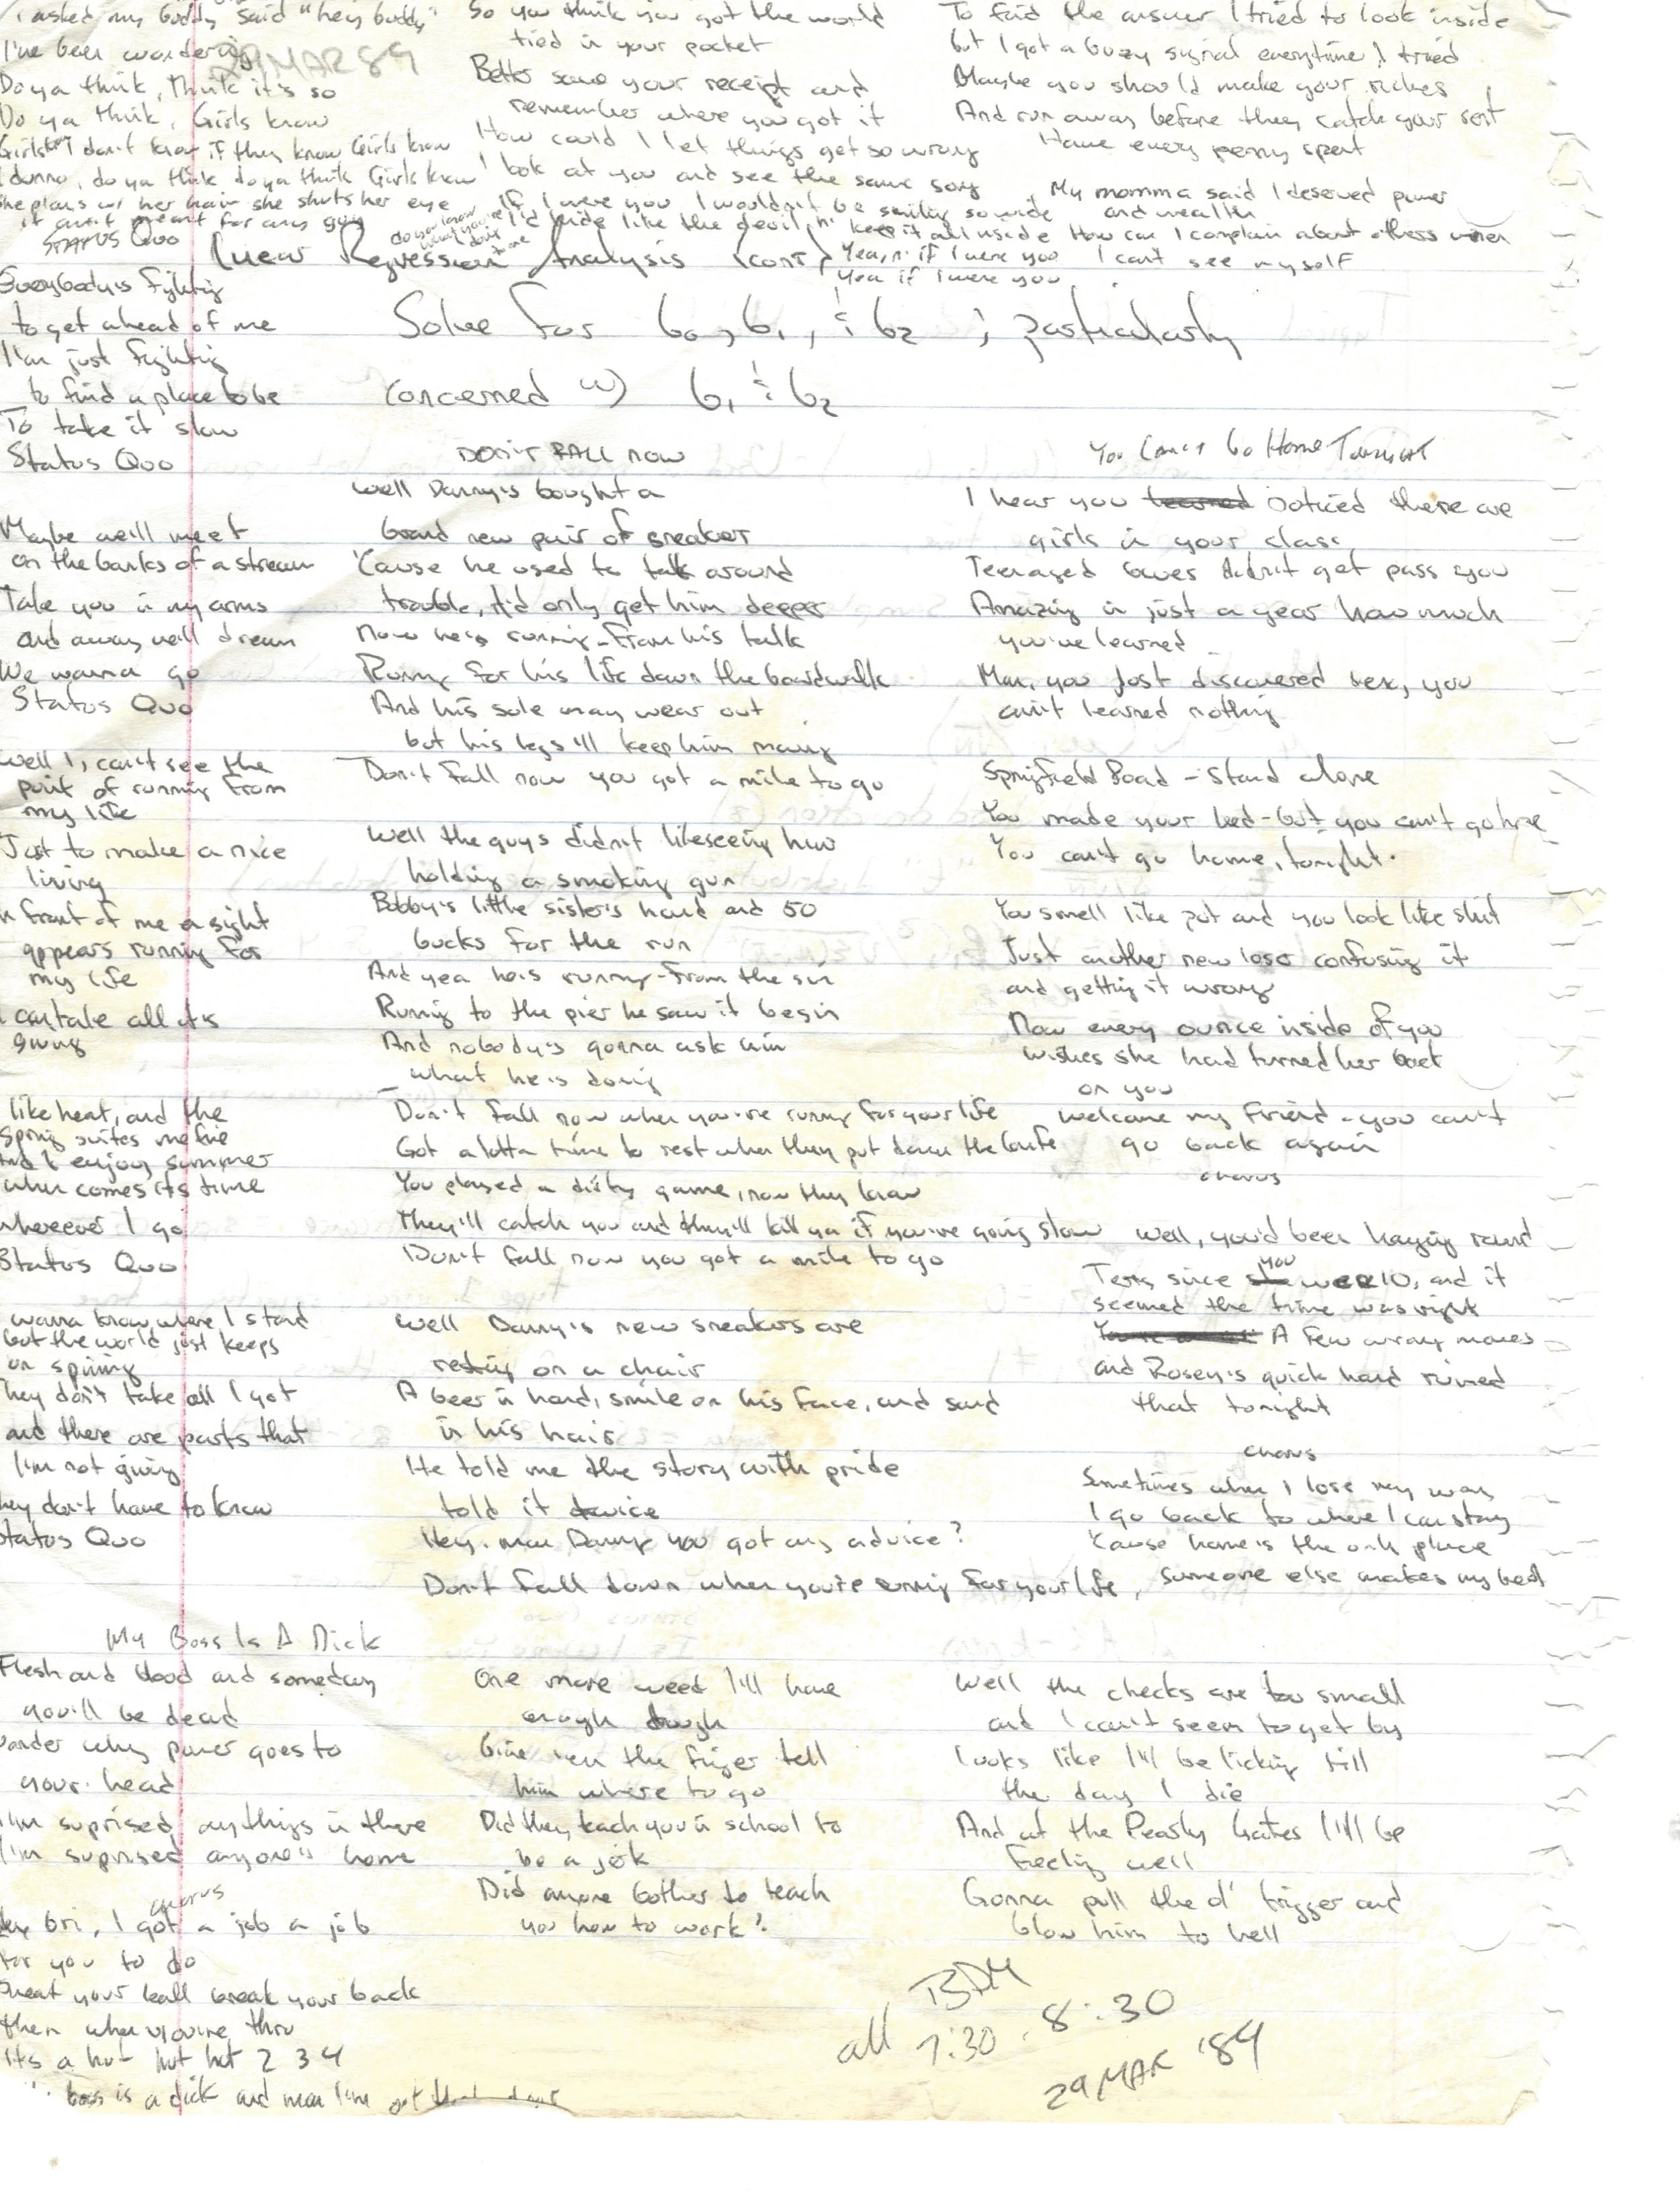 I asked my buddy said "hey buddy"
I've been wondering
29 MAR 89
Do ya think, think it's so
Do ya think, Girls know
Girls know I don't know if they know Girls know
I dunno, do ya think do ya think Girls know
She plays w/ her hair she shuts her eye
it ain't meant for any guy
do you know what you're doing to me
So you think you got the world
tied in your pocket
Better save your receipt and
remember where you got it
How could I let things get so wrong
I look at you and see the same song
If I were you I wouldn't be smiling so wide
I'd hide like the devil, n' keep it all inside
Yea, n' if I were you
Yea if I were you
To find the answer I tried to look inside
but I got a buzy signal everytime I tried
Maybe you should make your riches
And run away before they catch your
Have every penny spent
My momma said I deserved power
and wealth
How can I complain about others when
I can't see myself
Linear Regression Analysis (cont)
Solve for b0, b1, & b2 ; particularly
concerned w) b1 & b2
STATUS QUO
Everybody's fighting
to get ahead of me
I'm just fighting
to find a place to be
To take it slow
Status Quo
Maybe we'll meet
on the banks of a stream
Take you in my arms
and away we'll dream
We wanna go
Status Quo
Well I, can't see the
point of running from
my life
Just to make a nice
living
In front of me a sight
appears running for
my life
I can take all it's
giving
I like heat, and the
Spring suites me fine
And I enjoy summer
when comes its time
wherever I go
Status Quo
I wanna know where I stand
but the world just keeps
on spining
They don't take all I got
and there are parts that
I'm not giving
They don't have to know
Status Quo
DON'T FALL NOW
Well Danny's bought a
brand new pair of sneaker
'Cause he used to talk around
trouble, it'd only get him deeper
Now he's running - from his talk
Running for his life down the boardwalk
And his sole may wear out
but his legs'll keep him moving
Don't fall now you got a mile to go
Well the guys didn't like seeing him
holding a smoking gun
Bobby's little sister's hand and 50
bucks for the run
And yea he's running - from the sin
Running to the pier he saw it begin
And nobody's gonna ask him
what he is doing
Don't fall now when you're running for your life
Got a lotta time to rest when they put down the knife
You played a dirty game, now they know
They'll catch you and they'll kill ya if you're going slow
Don't fall now you got a mile to go
Well Danny's new sneakers are
resting on a chair
A beer in hand, smile on his face, and sand
in his hair
He told me the story with pride
told it twice
Hey, man Danny you got any advice?
Don't fall down when you're running for your life
You Can't Go Home Tonight
I hear you learned noticed there are
girls in your class
Teenaged loves didn't get pass you
Amazing in just a year how much
you've learned
Man, you just discovered sex, you
ain't learned nothing
Springfield Road - Stand alone
You made your bed - but you can't go home
You can't go home, tonight.
You smell like pot and you look like shit
Just another new loser confusing it
and getting it wrong
Now every ounce inside of you
wishes she had turned her back
on you
welcome my friend - you can't
go back again
chorus
Well, you'd been hanging round
Terry since you were 10, and it
seemed the time was right
A few wrong moves
and Rosey's quick hand ruined
that tonight
chorus
Sometimes when I lose my way
I go back to where I can stay
'Cause home is the only place
someone else makes my bed
My Boss Is A Dick
Flesh and blood and someday
you'll be dead
Wonder why power goes to
your head
I'm suprised anythings in there
I'm suprised anyone's home
chorus
Hey Bri, I got a job a job
for you to do
Sweat your ball break your back
then when you're thru
It's a hut hut hut 2 3 4
boss is a dick and man I'm out that door
One more week I'll have
enough dough
Give 'em the finger tell
him where to go
Did they teach you in school to
be a jerk
Did anyone bother to teach
you how to work?
Well the checks are too small
and I can't seem to get by
Looks like I'll be licking till
the day I die
And at the Pearly Gates I'll be
feeling well
Gonna pull the ol' trigger and
blow him to hell
BAM
all 7:30 - 8:30
29 MAR '89